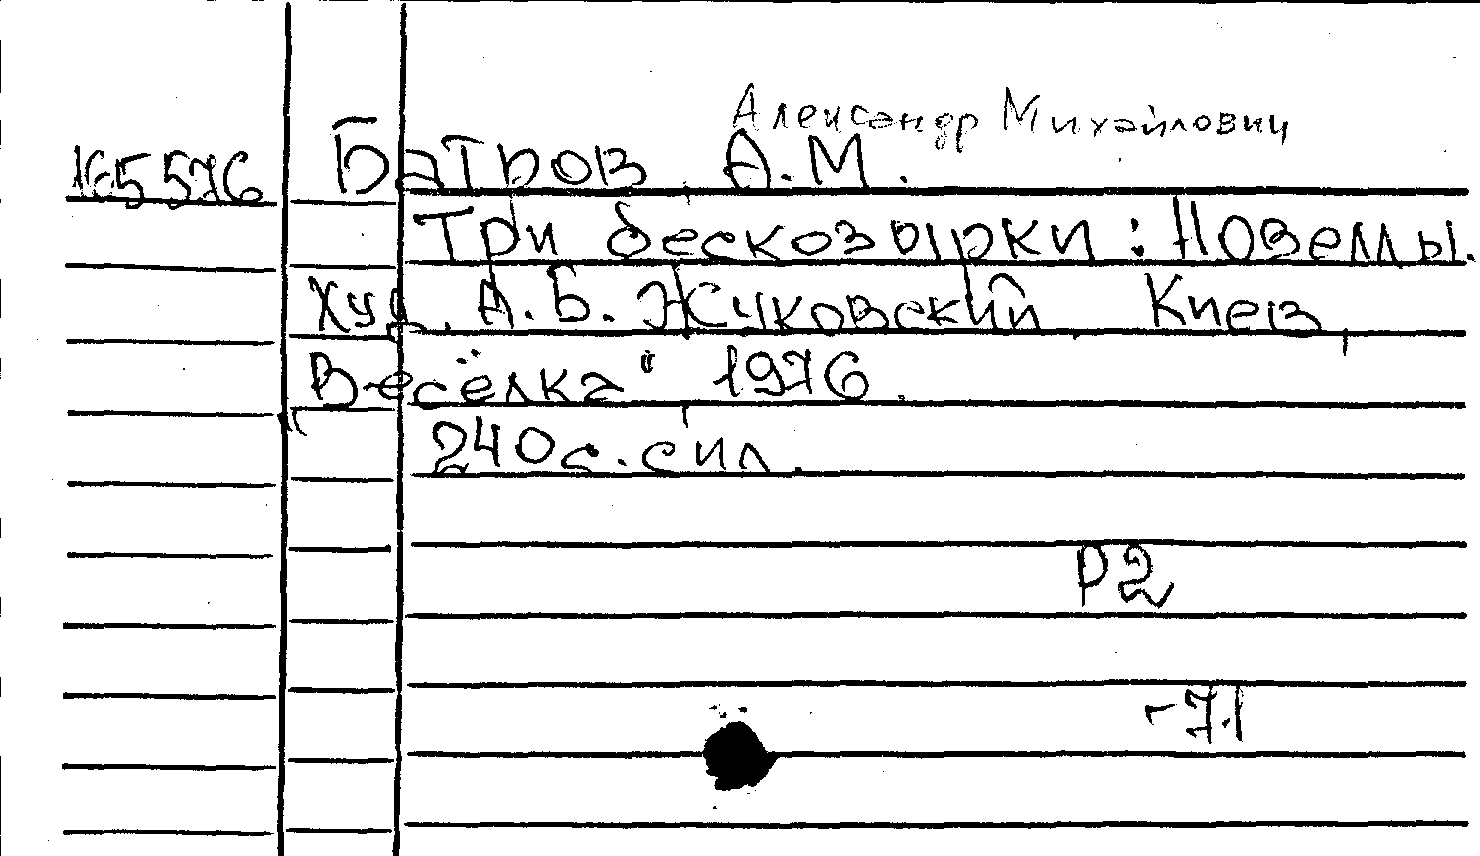 Александр Михайлович
165576 Батров А.М.
Три бескозырки : Новеллы.
Худ. А.Б. Жуковский Киев,
"Весёлка" 1976.
240с. с ил.
Р2
-7.1